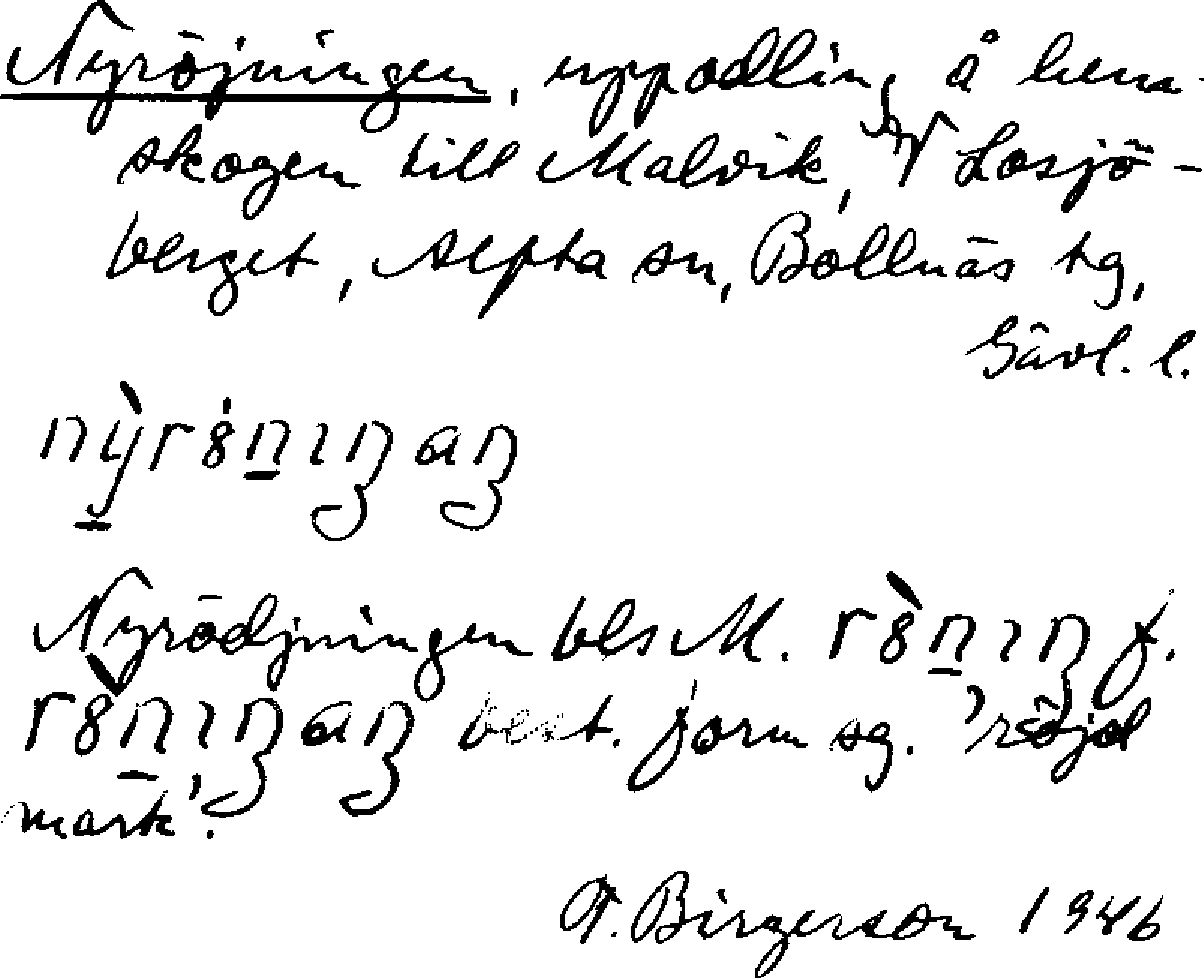 Nyröjningen, uppodling å hem-
skogen till Malvik, NV Losjö-
berget, Alfta sn, Bollnäs tg,
Gävl. l.
Nyrödjningen bls M. f.
best. form sg. 'röjd
mark'.
T. Birgerson 1946